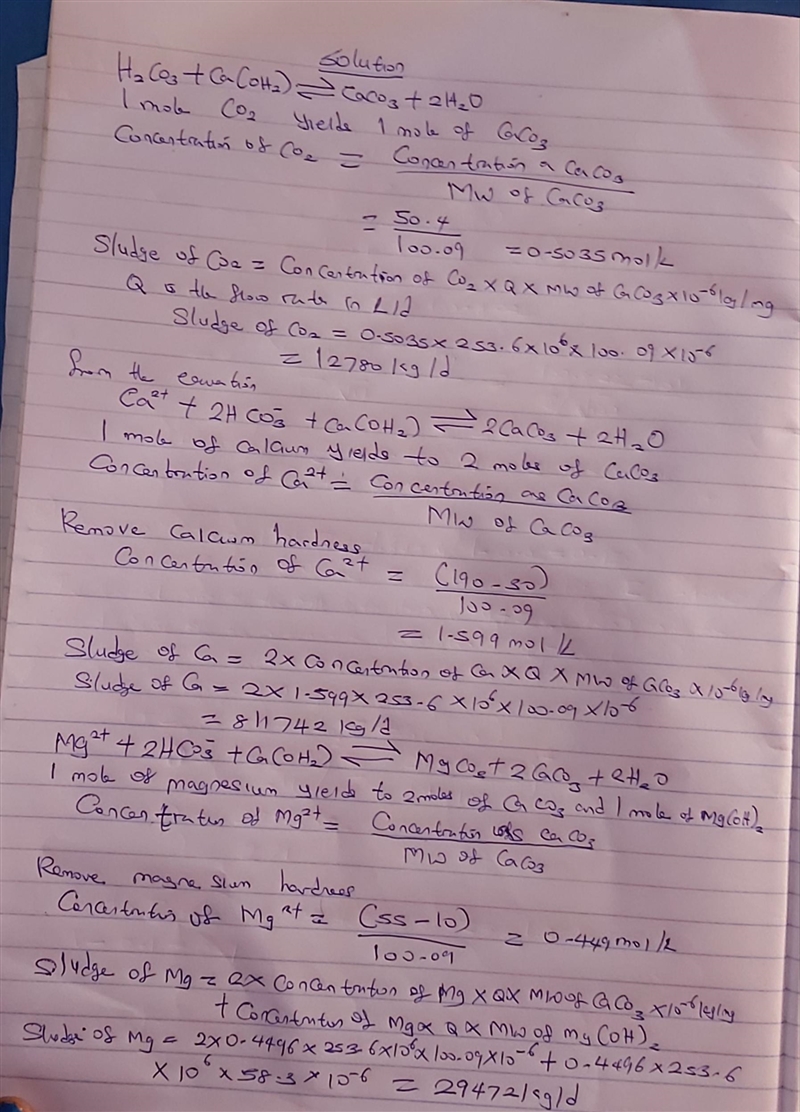 Solution
H2CO3 + Ca(OH2) ⇌ CaCO3 + 2H2O
1 mole CO2 yields 1 mole of CaCO3
Concentration of CO2 = Concentration a CaCO3
MW of CaCO3
= 50.4
100.09 = 0.5035 mol/L
Sludge of CO2 = Concentration of CO2 × Q × MW of CaCO3 × 10-6 kg/mg
Q is the flow rate in L/d
Sludge of CO2 = 0.5035 × 253.6 × 10⁶ × 100.09 × 10-6
= 12780 kg/d
from the equation
Ca2+ + 2HCO3- + Ca(OH2) ⇌ 2CaCO3 + 2H2O
1 mole of calcium yields to 2 moles of CaCO3
Concentration of Ca2+ = Concentration as CaCO3
MW of CaCO3
Remove Calcium hardness
Concentration of Ca2+ = (190 - 30)
100.09
= 1.599 mol/L
Sludge of Ca = 2 × Concentration of Ca × Q × MW of CaCO3 × 10-6 kg/mg
Sludge of Ca = 2 × 1.599 × 253.6 × 10⁶ × 100.09 × 10-6
= 811742 kg/d
Mg2+ + 2HCO3- + Ca(OH2) ⇌ MgCO3 + 2CaCO3 + 2H2O
1 mole of magnesium yields to 2 moles of CaCO3 and 1 mole of Mg(OH)2
Concentration of Mg2+ = Concentration as CaCO3
MW of CaCO3
Remove magnesium hardness
Concentration of Mg2+ = (55 - 10) = 0.449 mol/L
100.09
Sludge of Mg = 2 × Concentration of Mg × Q × MW of CaCO3 × 10-6 kg/mg
+ Concentration of Mg × Q × MW of Mg(OH)2
Sludge of Mg = 2 × 0.4496 × 253.6 × 10⁶ × 100.09 × 10-6 + 0.4496 × 253.6
× 10⁶ × 58.3 × 10-6 = 29472 kg/d